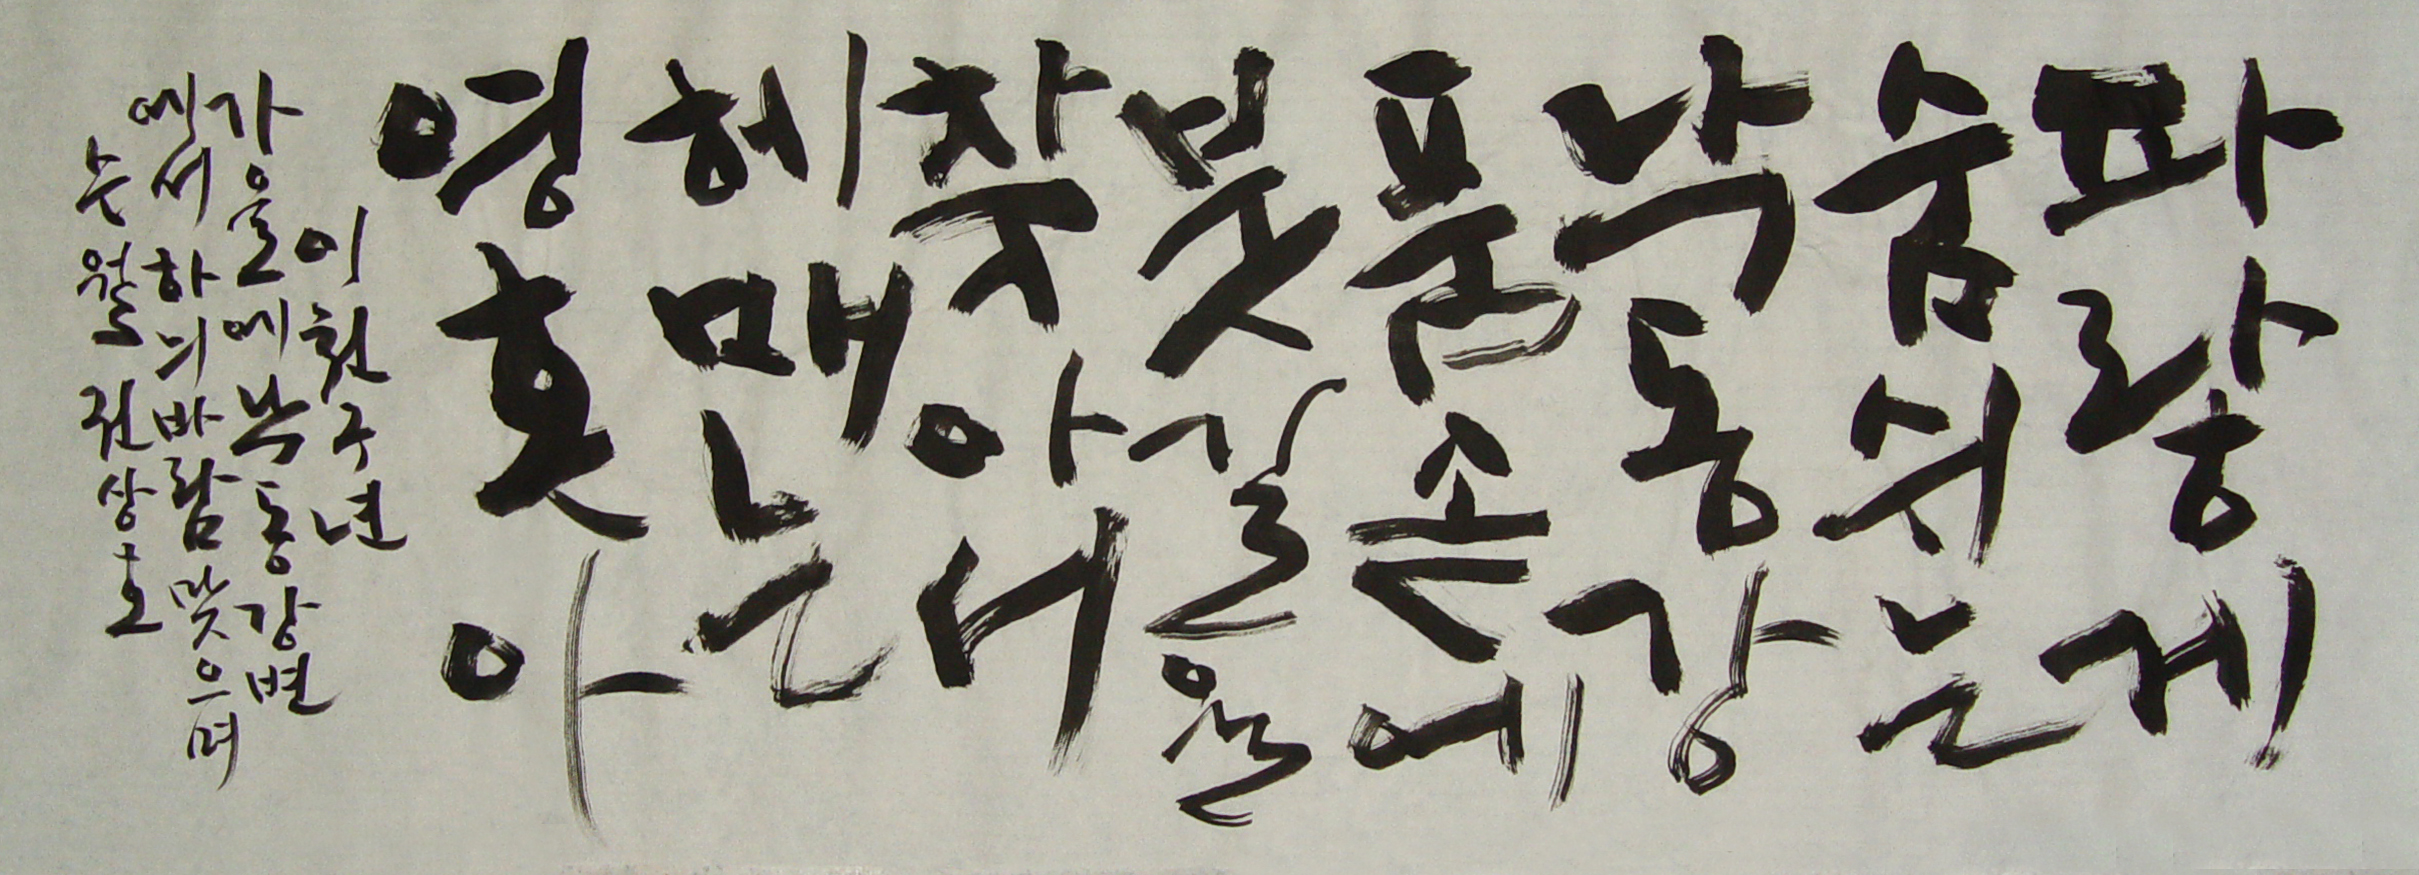 파랗게
숨쉬는
낙동강
품속에
붓길을
찾아서
헤매는
영혼아
이천구년
가을에낙동강변
에서하늬바람맞으며
수월권상호